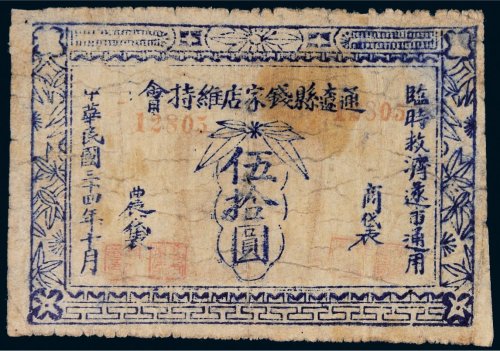 通遼縣錢家店維持會
12805
12805
臨時救濟遼市通用
商袋
伍拾圓
農袋
中華民國三十四年十月